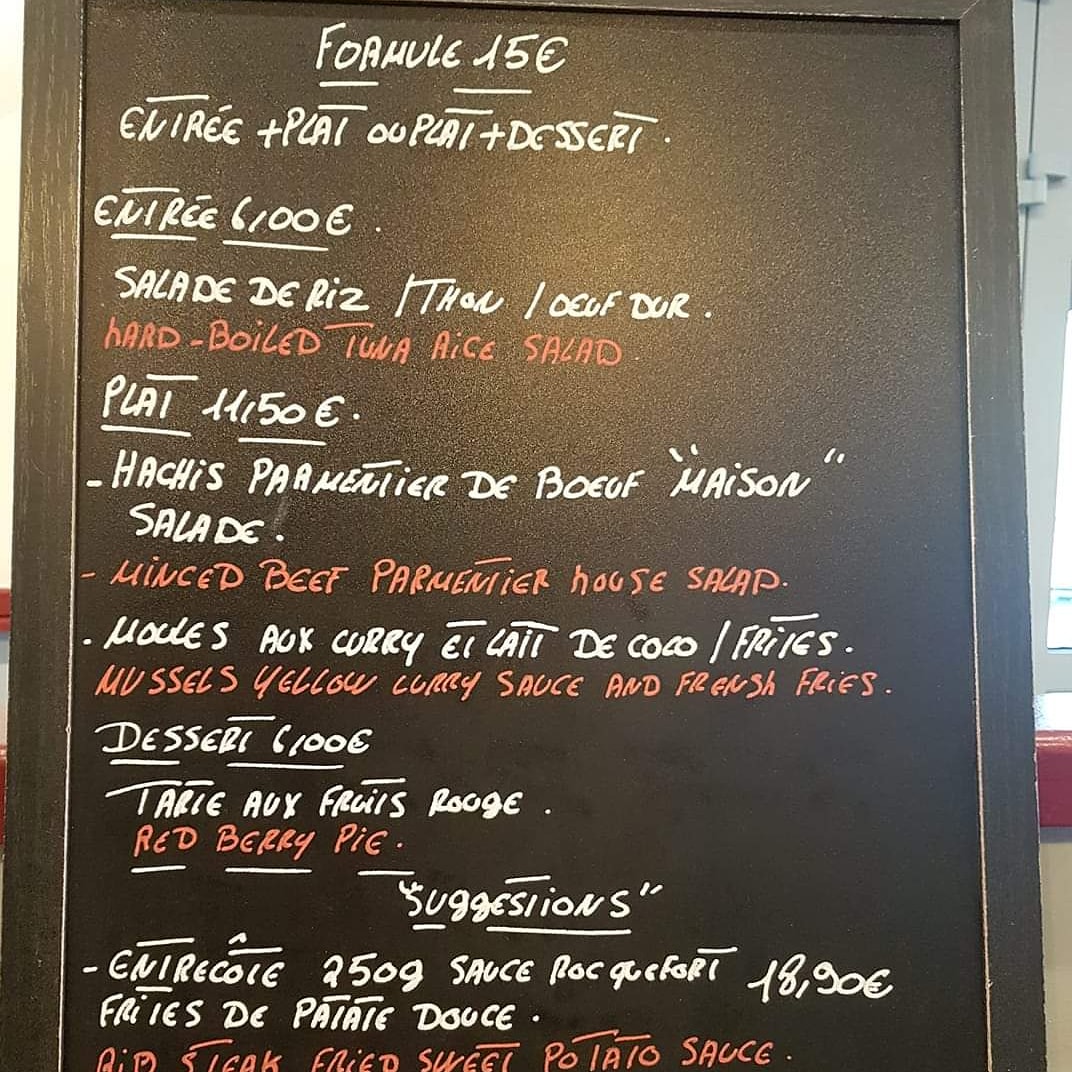 FORMULE 15€
ENTRÉE + PLAT OU PLAT + DESSERT.
ENTRÉE 6,00€.
SALADE DE RIZ / THON / OEUF DUR.
HARD-BOILED TUNA RICE SALAD.
PLAT 11,50€.
- HACHIS PARMENTIER DE BOEUF "MAISON"
SALADE.
- MINCED BEEF PARMENTIER HOUSE SALAD.
. MOULES AUX CURRY ET LAIT DE COCO / FRITES.
MUSSELS YELLOW CURRY SAUCE AND FRENSH FRIES.
DESSERT 6,00€
TARTE AUX FRUITS ROUGE.
RED BERRY PIE.
"SUGGESTIONS"
- ENTRECÔTE 250g SAUCE ROCQUEFORT 18,90€
FRITES DE PATATE DOUCE.
RIB STEAK FRIED SWEET POTATO SAUCE.